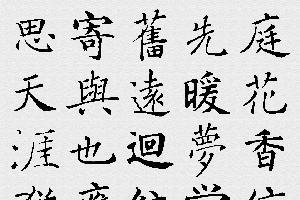 庭花香
先暖夢
舊遠迴
寄與也
思天涯